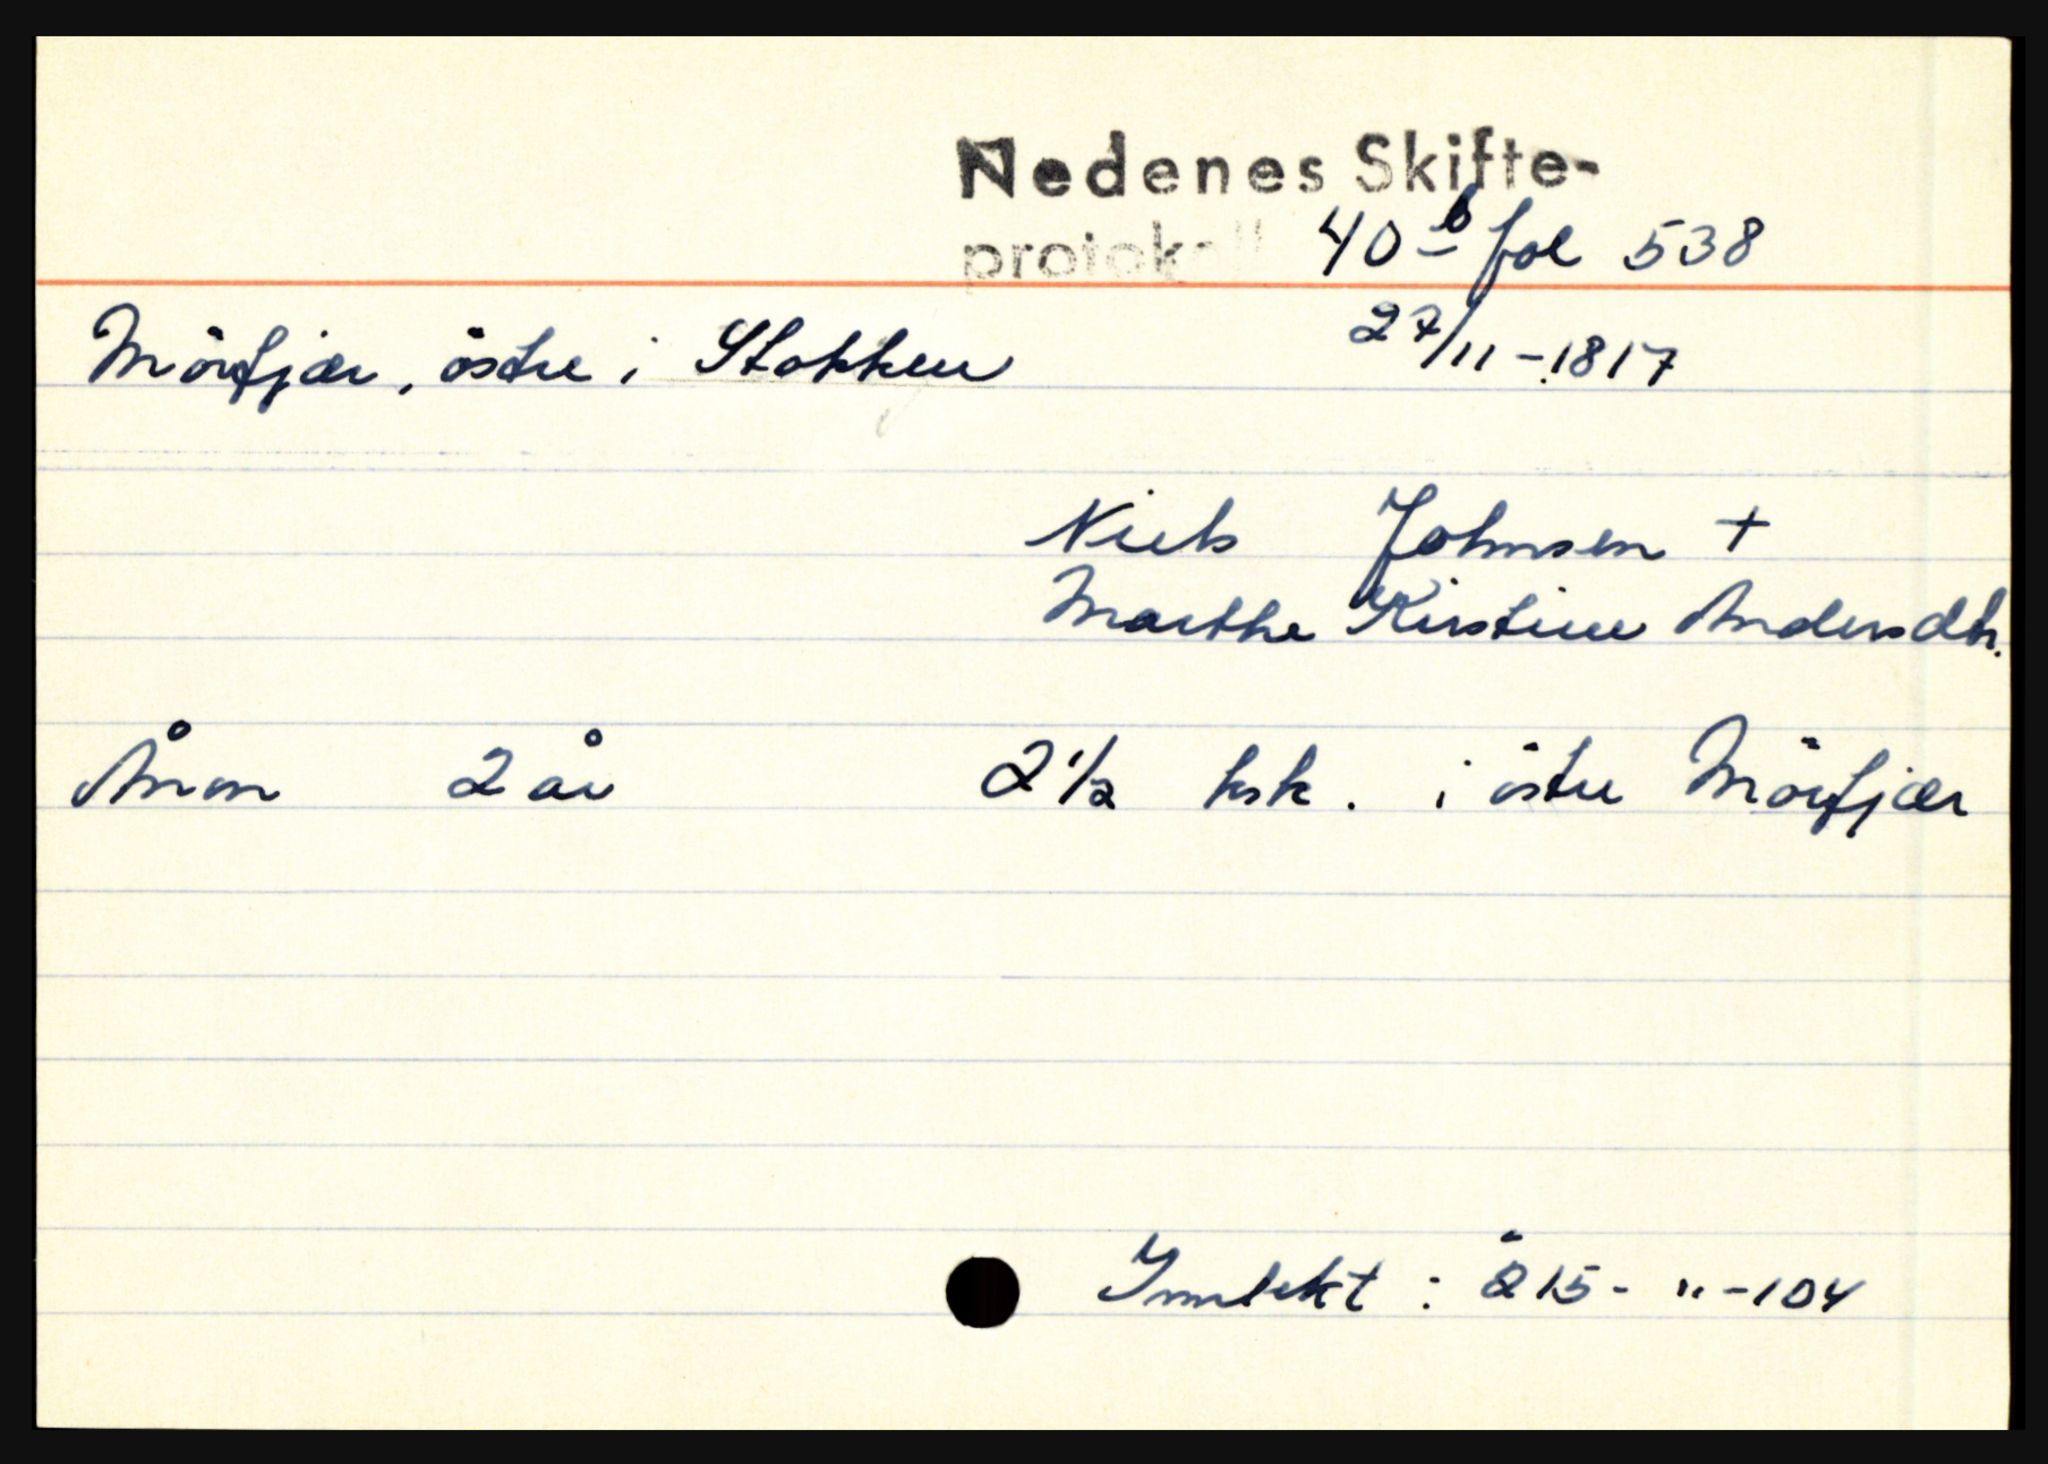 Nedenes Skifte-
protokoll 40 b fol 538
Mörfjær, östre i Stokken 27/11-1817
Niels Johnsen +
Marthe Kirstine Andersdtr.
Ånon 2 år 2 1/2 ksk. i östre Mörfjær
Inntekt: 215- "-104